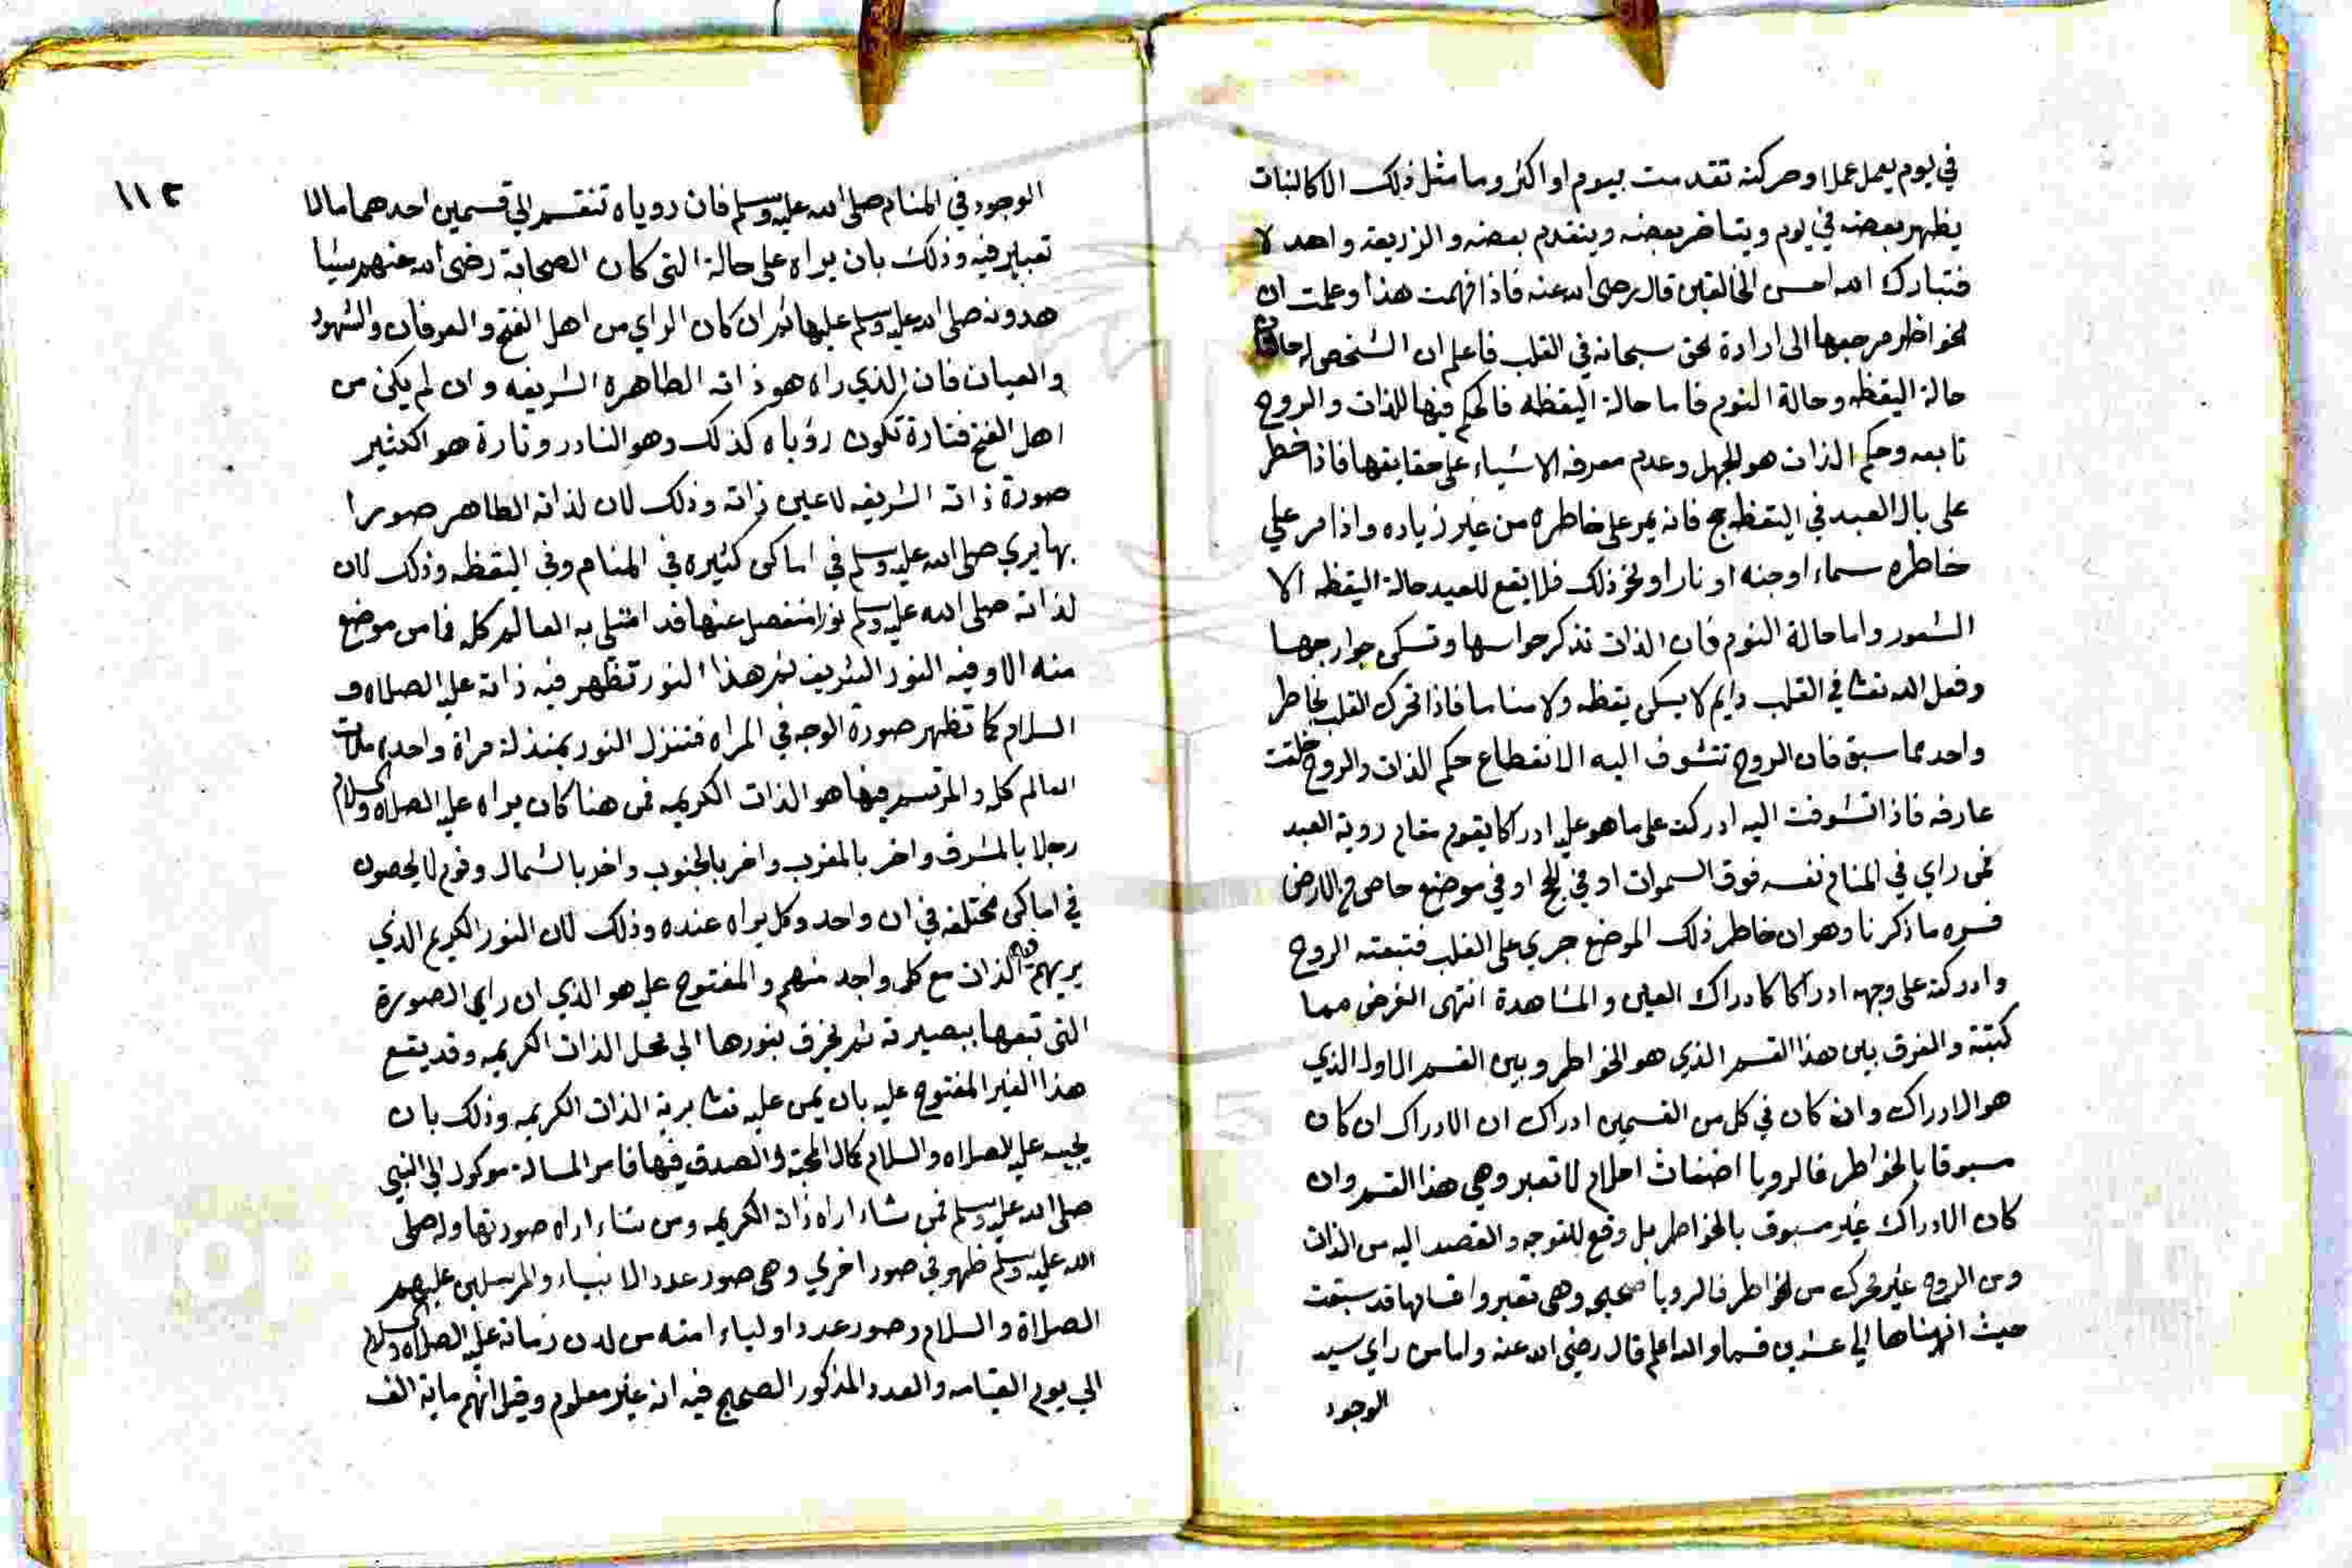 في يوم يعمل عملا وحركته تقدمت بيوم او اكثر وما مثل ذلك الا كالنبات
يظهر بعضه في يوم ويتاخر بعضه ويتقدم بعضه والزريعة واحدة لا
فتبارك الله احسن الخالقين قال رضى الله عنه فاذا فهمت هذا وعلمت ان
الخواطر مرجعها الى ارادة الحق سبحانه في القلب فاعلم ان الشخص له حالتان
حالة اليقظه وحالة النوم فاما حالة اليقظه فالحكم فيها للذات والروح
تابعه وحكم الذات هو الجهل وعدم معرفه الاشياء على حقايقها فاذا خطر
على بال العبد في اليقظه حج فانه يمر على خاطره من غير زياده واذا مر علي
خاطره سماء او جنه او نار او نحو ذلك فلا يقع للعبد حالة اليقظه الا
الشعور واما حالة النوم فان الذات تذكر حواسها وتسكن جوارجهـا
وفعل الله تعا في القلب دايم لا يسكن يقظه ولا مناما فاذا تحرك القلب بخاطر
واحد مما سبق فان الروح تتشوف اليه لانقطاع حكم الذات والروح خلقت
عارفه فاذا تشوفت اليه ادركت على ما هو عليه ادراكا يقوم مقام روية العبد
فمن راي في المنام نفسه فوق السموات او في الحج او في موضع خاص في الارض
فسره ما ذكرنا وهو ان خاطر ذلك الموضع جري على القلب فتبعته الروح
وادركته على وجهه ادراكا كادراك العيان والمشاهدة انتهى الغرض مما
كتبته والفرق بين هذا القسم الذي هو الخواطر وبين القسم الاول الذي
هو الادراك وان كان في كل من القسمين ادراك ان الادراك ان كان
مسبوقا بالخواطر فالرويا اضغاث احلام لا تعبر وهي هذا القسم وان
كان الادراك غير مسبوق بالخواطر بل وقع للتوجه والقصد اليه من الذات
ومن الروح غير تحرك من الخواطر فالرويا صحيحه وهى تعبر واقسامها قد سبقت
حيث انهيناها الي عشرين قسما والله اعلم قال رضى الله عنه واما من راي سيد
الوجود
١١٢
الوجود في المنام صلى الله عليه وسلم فان روياه تنقسم الي قسمين احدهما ما لا
تعبير فيه وذلك بان يراه على حالة التى كان الصحابة رضى الله عنهم يشا
هدونه صلى الله عليه وسلم عليها ثم ان كان الراي من اهل الفتح والعرفان والشهود
والعيان فان الذي راه هو ذاته الطاهرة الشريفه وان لم يكن من
اهل الفتح فتارة تكون رؤياه كذلك وهو النادر وتارة هو الكثير
صورة ذاته الشريفه لا عين ذاته وذلك لان لذاته الطاهر صورا
بها يري صلى الله عليه وسلم في اماكن كثيره في المنام وفي اليقظه وذلك لان
لذاته صلى الله عليه وسلم نورا منفصل عنها قد امتلى به العالم كله فما من موضع
منه الا وفيه النور الشريف ثم هذا النور تظهر فيه ذاته عليه الصلاة و
السلام كما تظهر صورة الوجه في المراه فتنزل النور بمنزلة مراة واحدة ملات
العالم كله والمرتسم فيها هو الذات الكريمه فمن هنا كان يراه عليه الصلاه والسلام
رجلا بالمشرق واخر بالمغرب واخر بالجنوب واخر بالشمال وقوم لا يحصون
في اماكن مختلفه في ان واحد وكل يراه عنده وذلك لان النور الكريم الذي
يريهم فيه الذات مع كل واحد منهم والمفتوح عليه هو الذي ان راي الصورة
التى تبعها ببصيرته ثم يخرق بنورها الي محل الذات الكريمه وقد يقع
هذا الغير المفتوح عليه بان يمن عليه تعا برية الذات الكريمه وذلك بان
يجيبه عليه الصلاه والسلام كمال المحبة والصدق فيها فامر المسالة موكول الي النبي
صلى الله عليه وسلم فمن شاء اراه ذاته الكريمه ومن شاء اراه صورتها وله صلى
الله عليه وسلم ظهور في صور اخري وهى صور عدد الانبياء والمرسلين عليهم
الصلاة والسلام وصور عدد اولياء امته من لدن زمانه عليه الصلاه والسلام
الي يوم القيامه والعدد المذكور الصحيح فيه انه غير معلوم وقيل انهم ماية الف